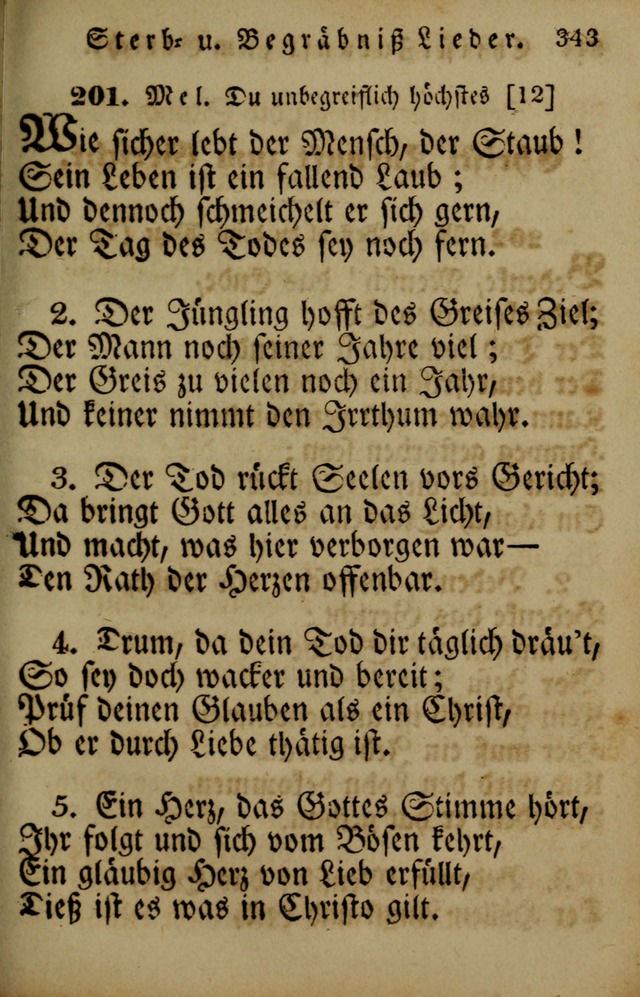 Sterb- u. Begräbniß Lieder. 343
201. Mel. Du unbegreiflich höchstes [12]
Wie sicher lebt der Mensch, der Staub!
Sein Leben ist ein fallend Laub;
Und dennoch schmeichelt er sich gern,
Der Tag des Todes sey noch fern.
2. Der Jüngling hofft des Greises Ziel;
Der Mann noch seiner Jahre viel;
Der Greis zu vielen noch ein Jahr,
Und keiner nimmt den Irrthum wahr.
3. Der Tod rückt Seelen vors Gericht;
Da bringt Gott alles an das Licht,
Und macht, was hier verborgen war—
Den Rath der Herzen offenbar.
4. Drum, da dein Tod dir täglich dräu't,
So sey doch wacker und bereit;
Prüf deinen Glauben als ein Christ,
Ob er durch Liebe thätig ist.
5. Ein Herz, das Gottes Stimme hört,
Ihr folgt und sich vom Bösen kehrt,
Ein gläubig Herz von Lieb erfüllt,
Dieß ist es was in Christo gilt.